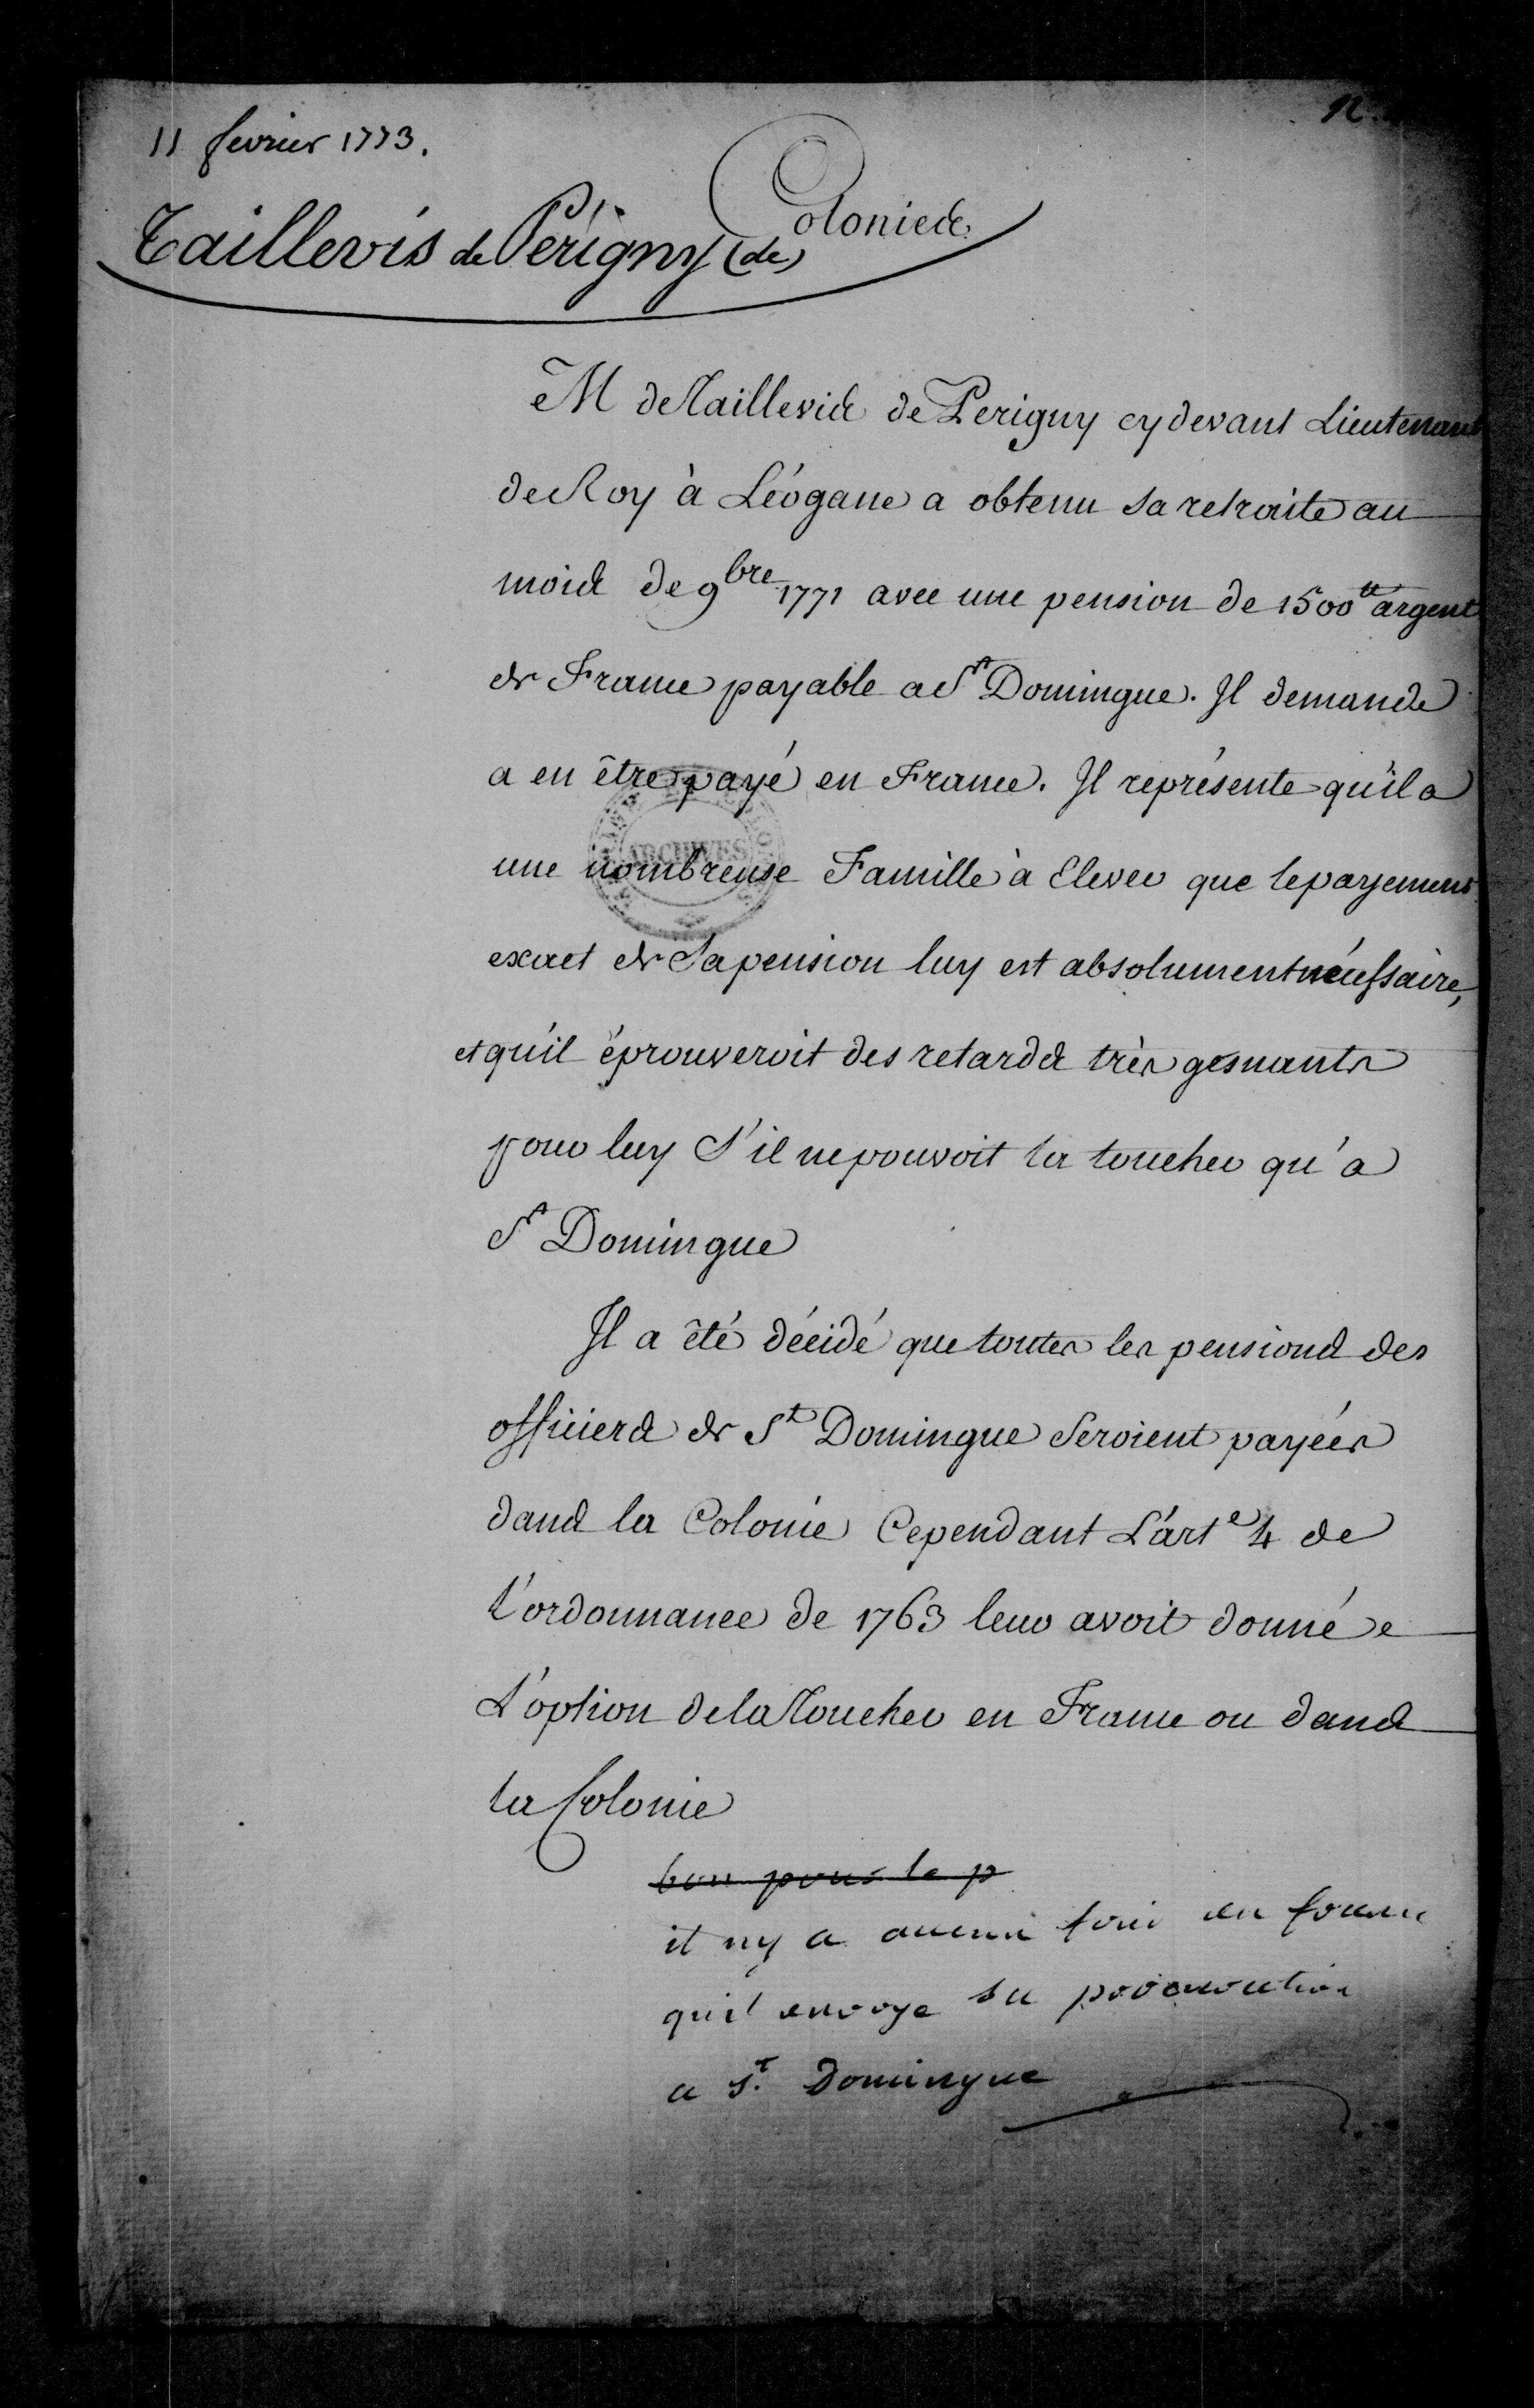 11 fevrier 1773.
Colonies.
Taillevis de Périgny (de)
M de Taillevis de Perigny cy devant Lieutenant
de Roy à Léogane a obtenu sa retraite au
mois de 9bre 1771 avec une pension de 1500tt argent
de France payable a St Domingue. Il demande
a en être payé en France. Il représente qu'il a
une nombreuse Famille à Elever que le payement
exact de Sa pension luy est absolument nécessaire,
et qu'il éprouveroit des retards très gesnants
pour luy S'il ne pouvoit la toucher qu'a
St Domingue
Il a été décidé que toutes les pensions des
officiers de St Domingue Seroient payées
dans la Colonie Cependant L'arte 4 de
l'ordonnance de 1763 leur avoit donné
L'option de la Toucher en France ou dans
la Colonie
bon pour le p
il ny a aucun fond en france
quil envoye sa procuration
a St. Domingue
ARCHIVES